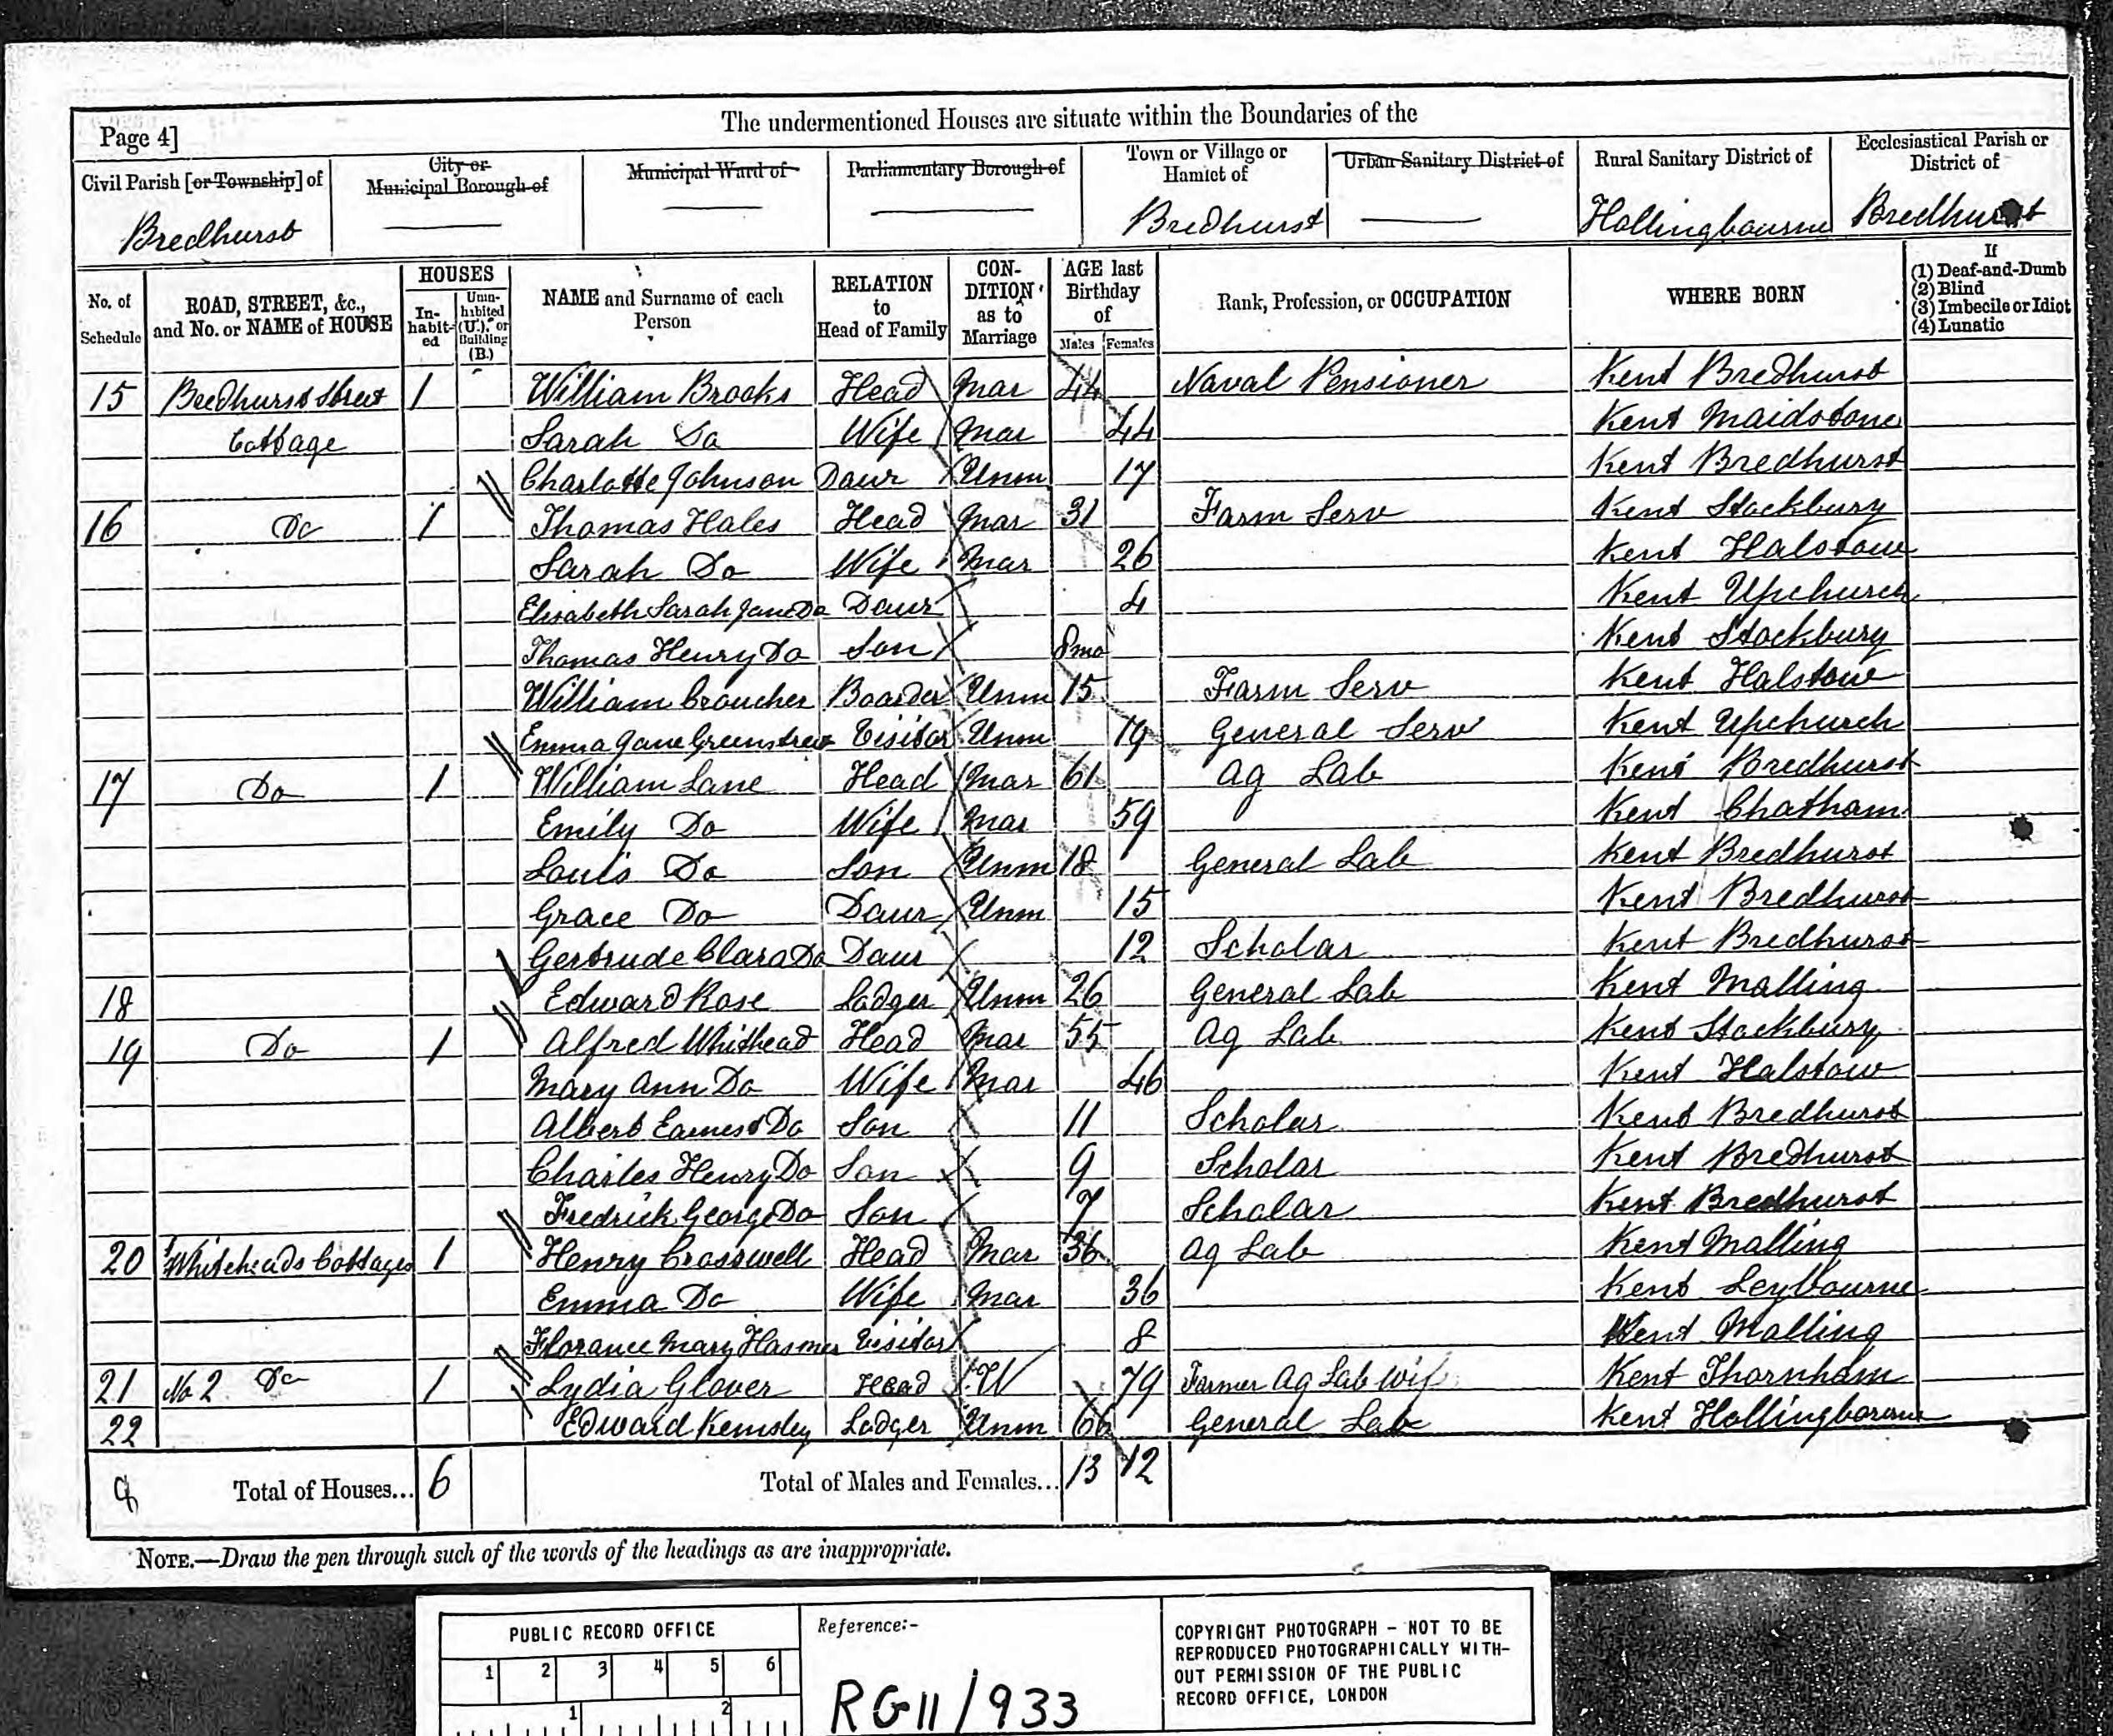 The undermentioned Houses are situate within the Boundaries of the
Page 4]
Civil Parish [or Township] of
City or Municipal Borough of
Municipal Ward of
Parliamentary Borough of
Town or Village or Hamlet of
Urban Sanitary District of
Rural Sanitary District of
Ecclesiastical Parish or District of
Bredhurst Bredhurst Hollingbourne Bredhurst
No. of Schedule
ROAD, STREET, &c., and No. or NAME of HOUSE
HOUSES
In-habit-ed
Unin-habited (U.), or Building (B.)
NAME and Surname of each Person
RELATION to Head of Family
CON-DITION as to Marriage
AGE last Birthday of
Males Females
Rank, Profession, or OCCUPATION
WHERE BORN
If
(1) Deaf-and-Dumb
(2) Blind
(3) Imbecile or Idiot
(4) Lunatic
15 Bredhurst Street 1 William Brooks Head Mar 44 Naval Pensioner Kent Bredhurst
Cottage Sarah Do Wife Mar 44 Kent Maidstone
Charlotte Johnson Daur Unm 17 Kent Bredhurst
16 Do 1 Thomas Hales Head Mar 31 Farm Serv Kent Stockbury
Sarah Do Wife Mar 26 Kent Halstow
Elisabeth Sarah Jane Do Daur 4 Kent Upchurch
Thomas Henry Do Son 8mo Kent Stockbury
William Croucher Boarder Unm 15 Farm Serv Kent Halstow
Emma Jane Greenstreet Visitor Unm 19 General Serv Kent Upchurch
17 Do 1 William Lane Head Mar 61 Ag Lab Kent Bredhurst
Emily Do Wife Mar 59 Kent Chatham
Louis Do Son Unm 18 General Lab Kent Bredhurst
Grace Do Daur Unm 15 Kent Bredhurst
Gertrude Clara Do Daur 12 Scholar Kent Bredhurst
18 Edward Rose Lodger Unm 26 General Lab Kent Malling
19 Do 1 Alfred Whithead Head Mar 55 Ag Lab Kent Stockbury
Mary Ann Do Wife Mar 46 Kent Halstow
Albert Earnest Do Son 11 Scholar Kent Bredhurst
Charles Henry Do Son 9 Scholar Kent Bredhurst
Fredrick George Do Son 7 Scholar Kent Bredhurst
20 Whiteheads Cottages 1 Henry Crosswell Head Mar 36 Ag Lab Kent Malling
Emma Do Wife Mar 36 Kent Leybourne
Florance Mary Visitor 8 Kent Malling
21 No 2 Do 1 Lydia Glover Head W 79 Farmer Ag Lab Wif Kent Thornham
22 Edward Kemsley Lodger Unm 66 General Lab Kent Hollingbourne
Total of Houses... 6 Total of Males and Females... 13 12
NOTE.—Draw the pen through such of the words of the headings as are inappropriate.
PUBLIC RECORD OFFICE
1 2 3 4 5 6
1 2
Reference:-
RG11/933
COPYRIGHT PHOTOGRAPH - NOT TO BE
REPRODUCED PHOTOGRAPHICALLY WITH-
OUT PERMISSION OF THE PUBLIC
RECORD OFFICE, LONDON